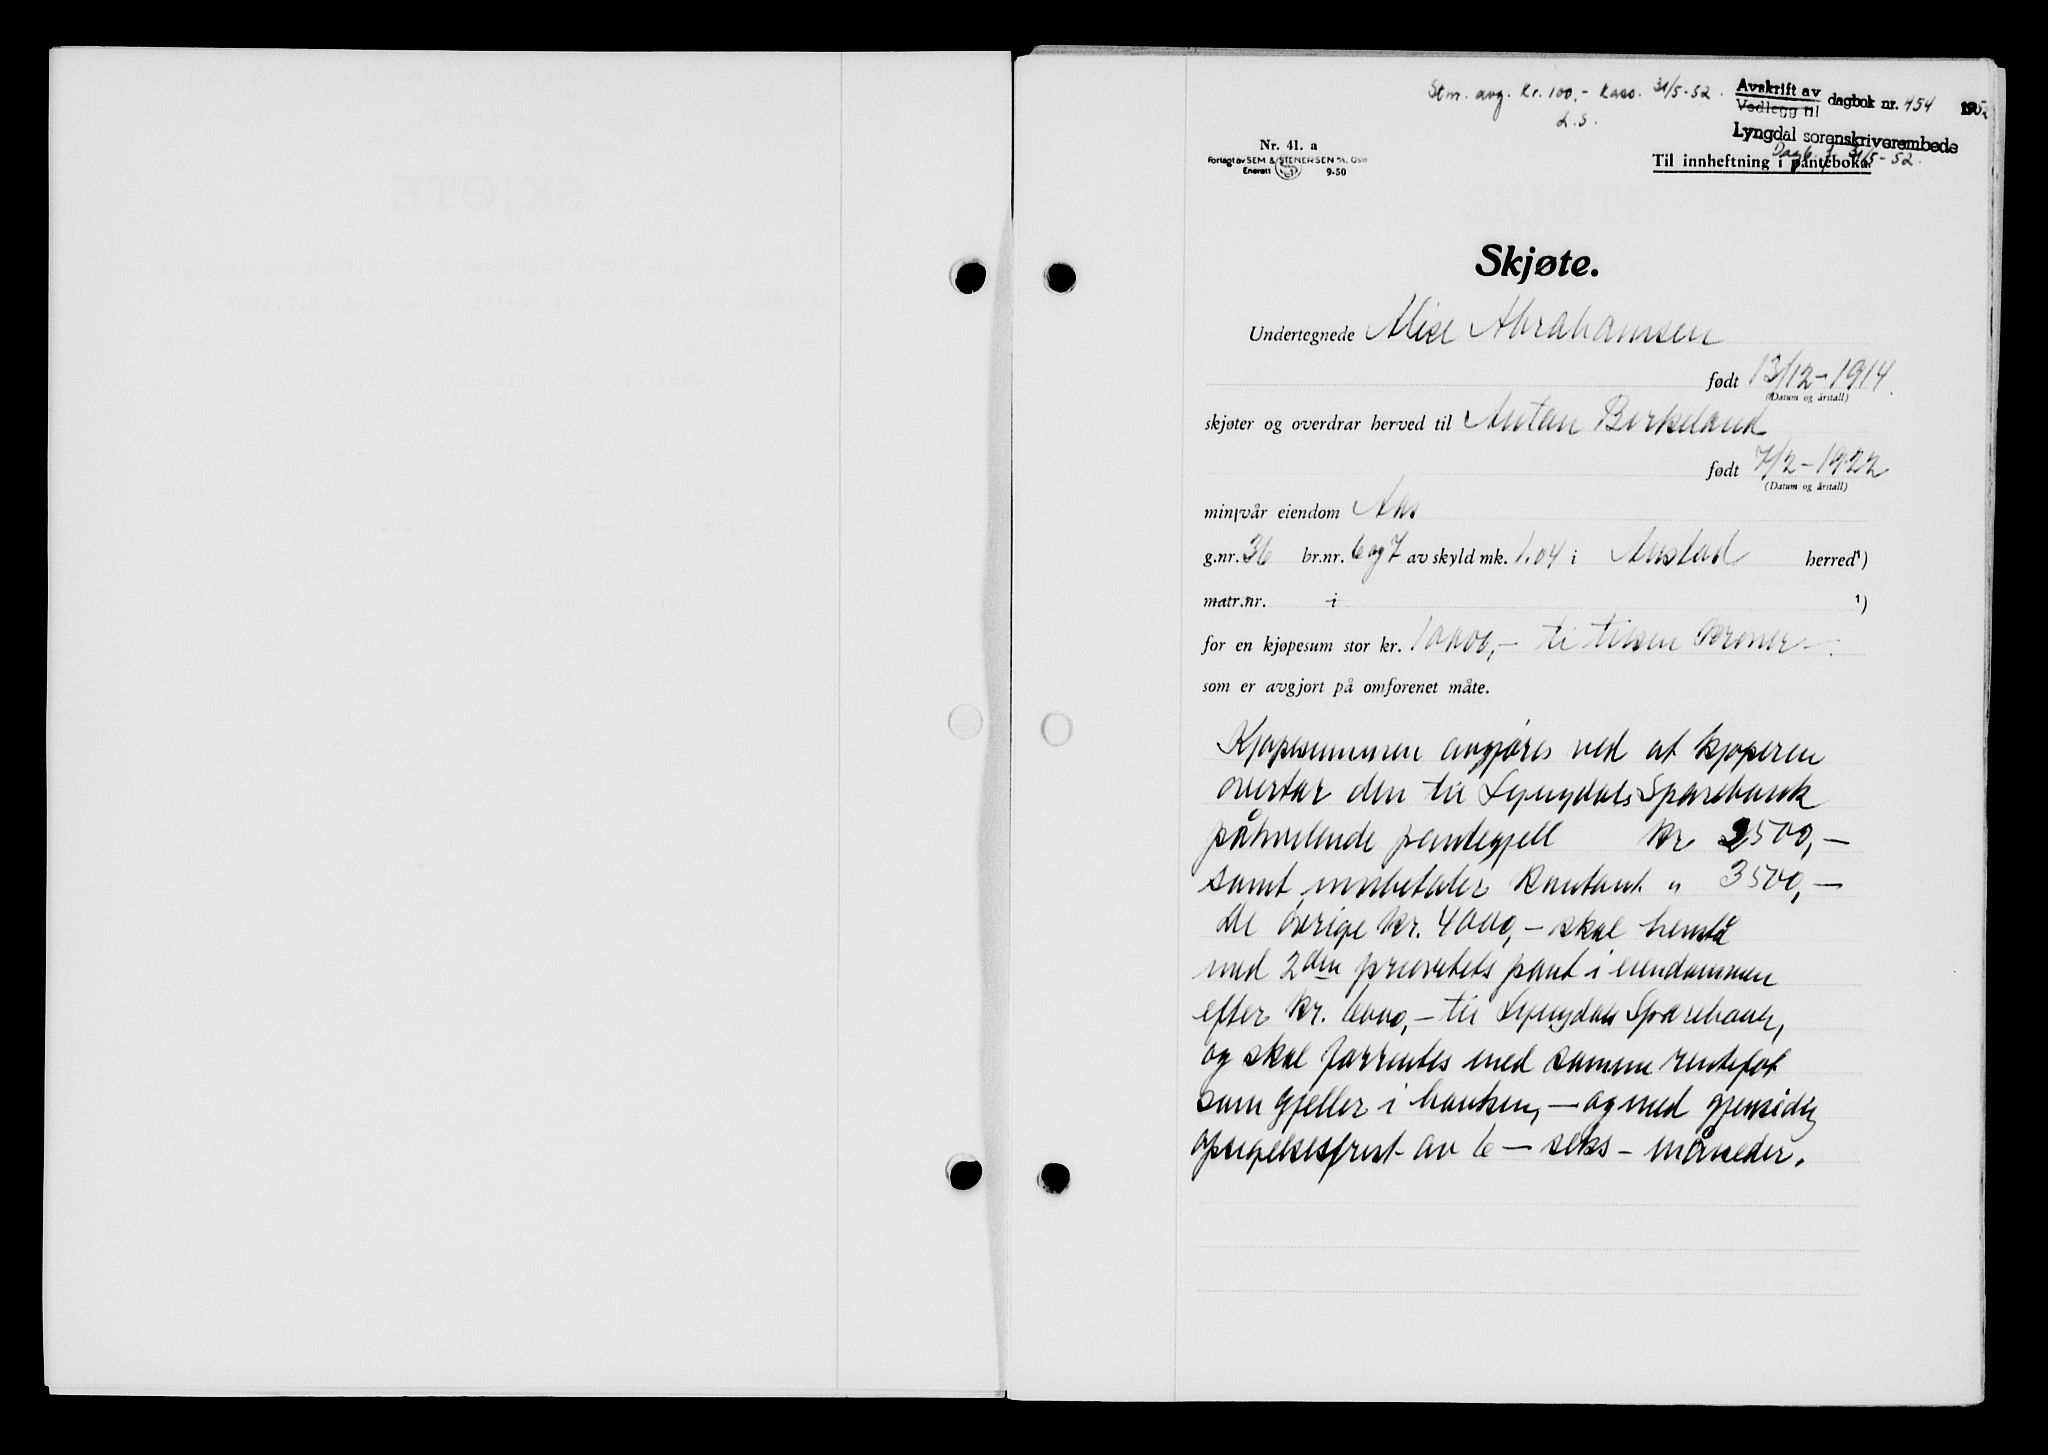 Stm. avg. Kr. 100,- Kass. 31/5-52.
L.S.
Avskrift av
Vedlegg til
dagbok nr. 454 1952
Lyngdal sorenskriverembede
Dagb. f. 31/5-52.
Nr. 41. a
Forlagt av SEM & STENERSEN A/S, Oslo
Enerett 9-50
Til innheftning i panteboka.
Skjøte.
Undertegnede Alise Abrahamsen
født 13/12-1914.
(Datum og årstall)
skjøter og overdrar herved til Anton Birkeland
født 7/2-1922
(Datum og årstall)
min/vår eiendom Aas
g.nr. 36 br.nr. 6 og 7 av skyld mk. 1.04 i Austad herred¹)
matr.nr. i ¹)
for en kjøpesum stor kr. 10000,- ti tusen kroner-.
som er avgjort på omforenet måte.
Kjøpesummen avgjøres ved at kjøperen
overtar den til Lyngdals Sparebank
påhvilende pantegjell kr 2500,-
samt innbetaler kontant " 3500,-
De øvrige kr. 4000,- skal henstå
med 2den prioritets pant i eiendommen
efter kr. 6000,- til Lyngdals Sparebank,
og skal forrentes med samme rentefot
som gjeller i banken, - og med gjensidig
opsigelsesfrist av 6 - seks - måneder.